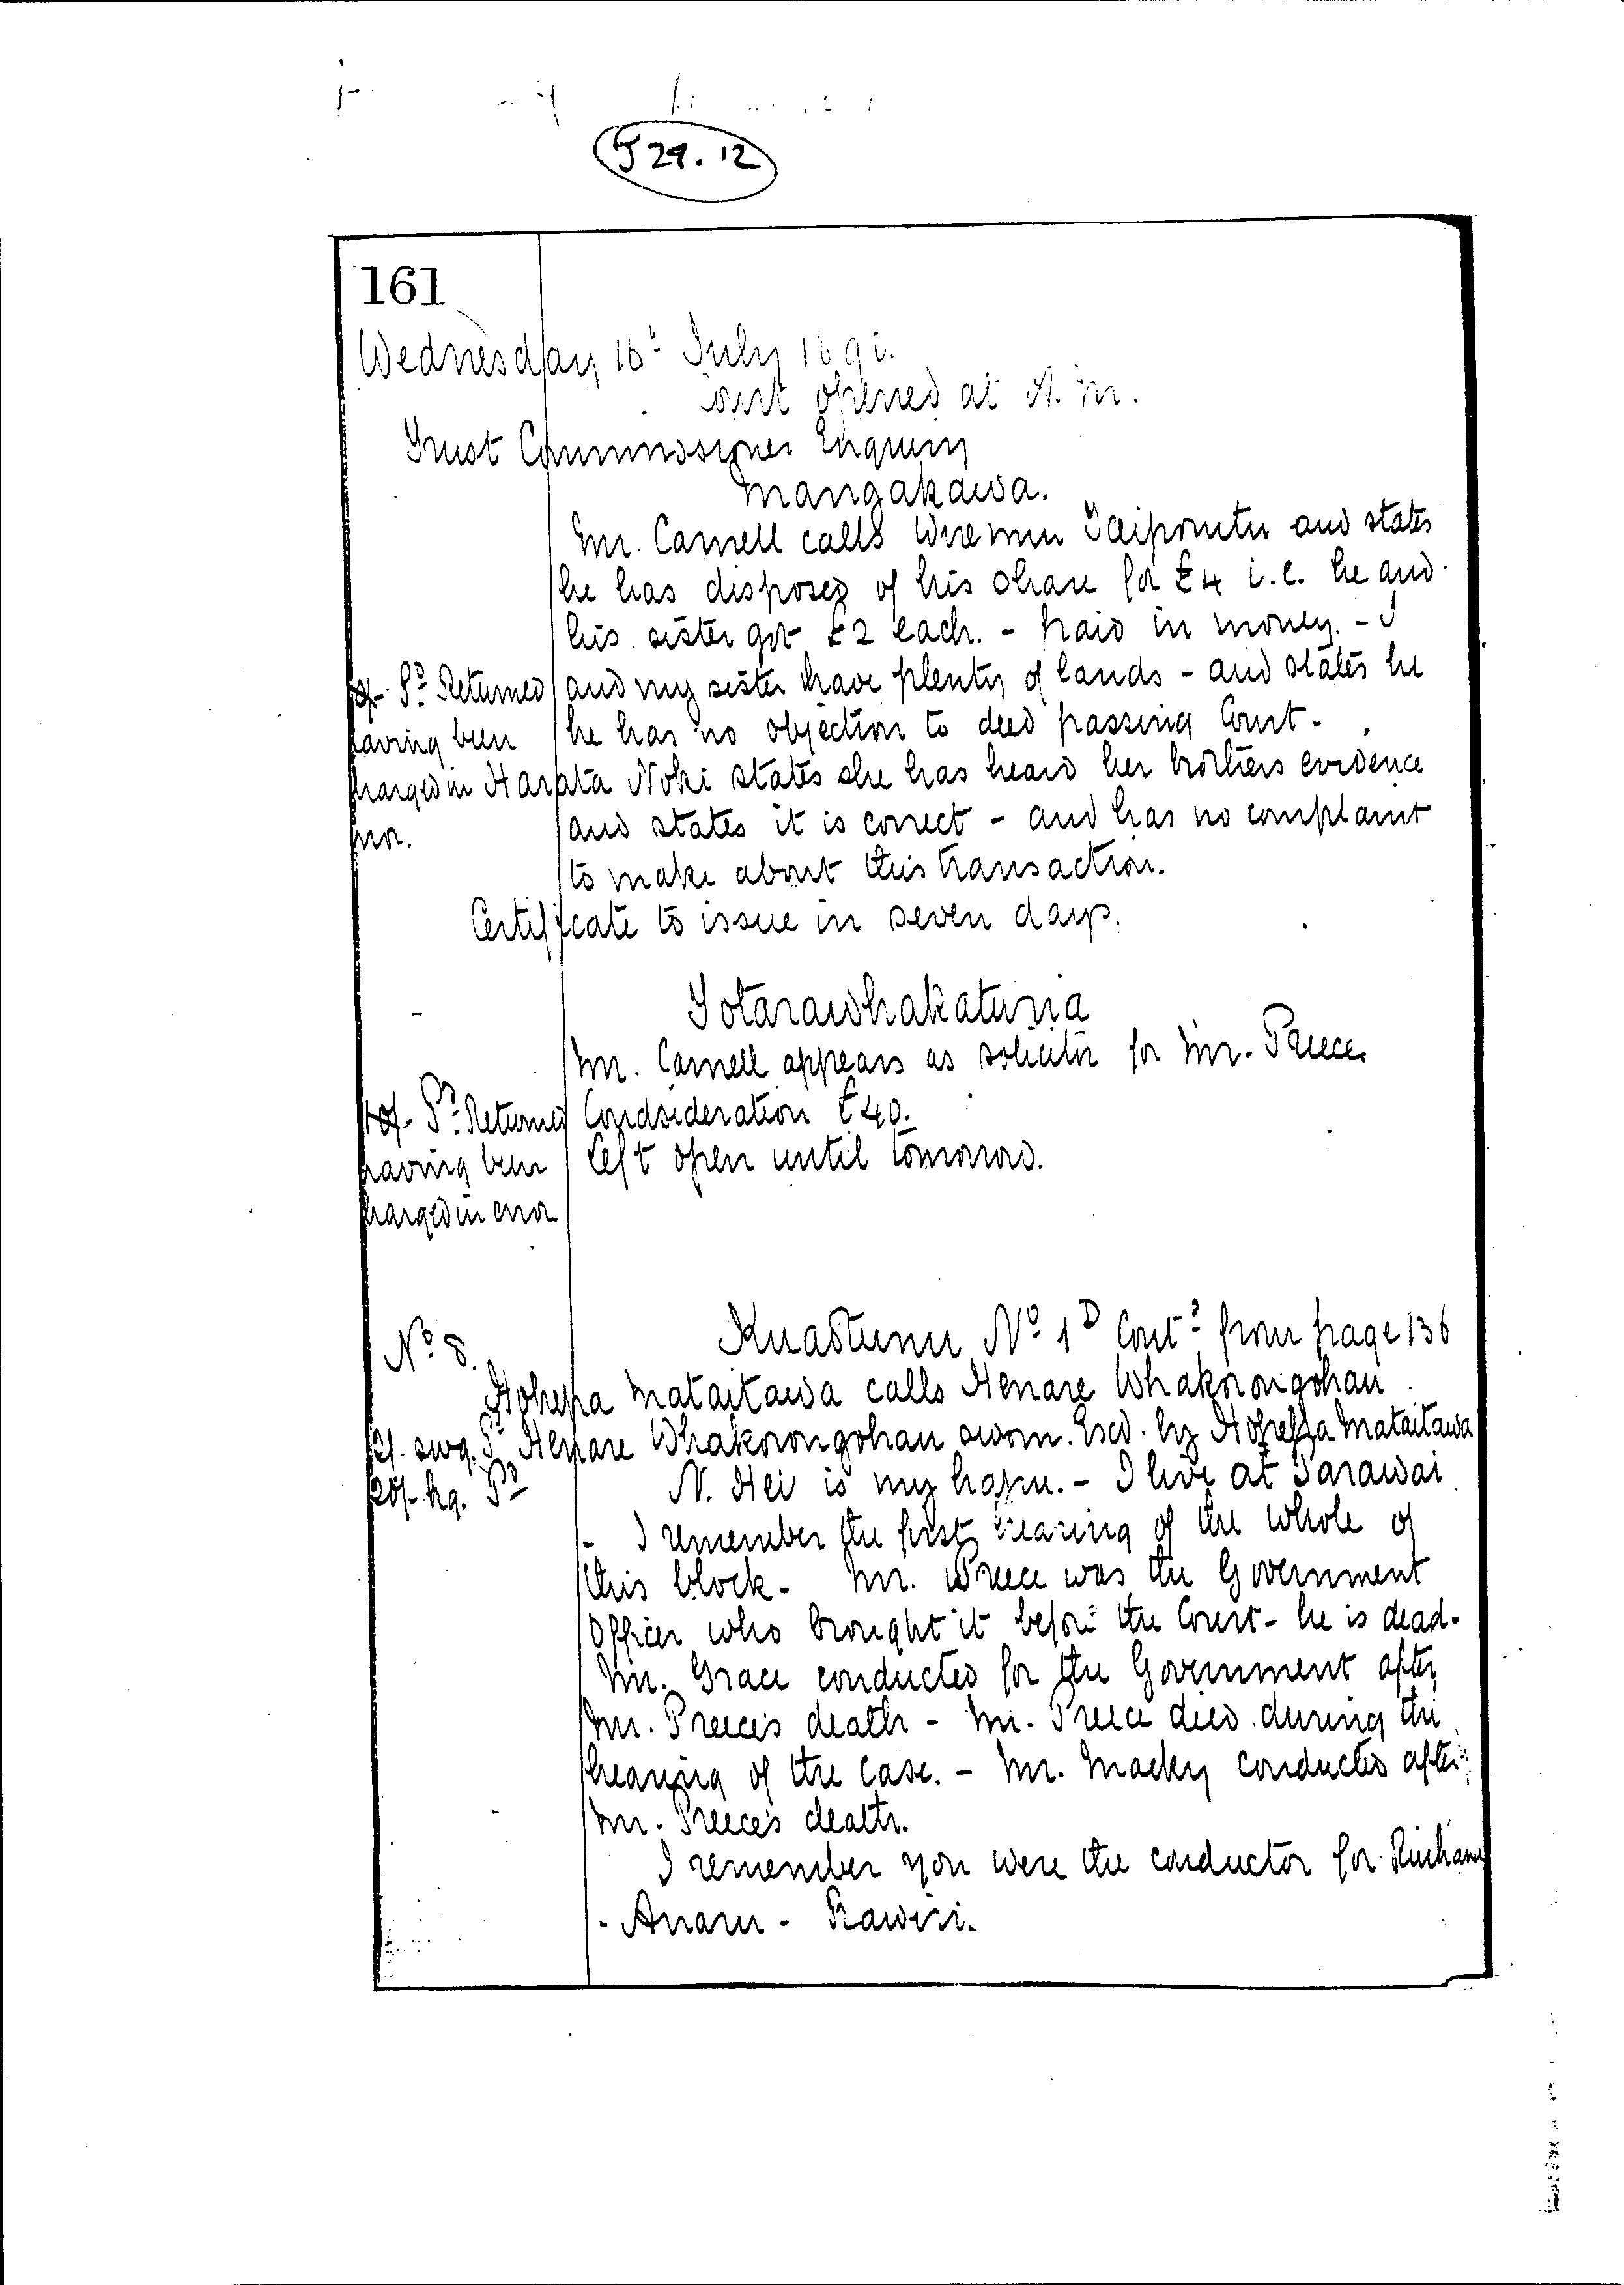 J 29.12
161
Wednesday, 16th July 1890.
Court opened at A.M.
Trust Commissioner Enquiry
Mangakawa.
Mr. Carnell calls Wiremu Taipoutu and states
he has disposed of his share for £4 i.e. he and
his sister got £2 each. - paid in money. - I
Pd. Returned and my sister have plenty of lands - and states he
having been he has no objection to deed passing Court.
charged in Harata Noki states she has heard her brothers evidence
error. and states it is correct - and has no complaint
to make about this transaction.
Certificate to issue in seven days.
Totarawhakaturia
Mr. Carnell appears as solicitor for Mr. Preece.
Pd. Returned Condsideration £40.
having been Left open until tomorrow.
charged in error
No 8. Kuaotunu No 1D Contd from page 136
Hohepa Mataitawa calls Henare Whakorongohau
2/- swg. Pd Henare Whakorongohau sworn. Exd. by Hohepa Mataitawa
20/- hg. Pd N. Hei is my hapu. - I live at Tarawai
- I remember the first hearing of the whole of
this block. Mr. Preece was the Government
Officer who brought it before the Court - he is dead.
Mr. Grace conducted for the Government after
Mr. Preece's death - Mr. Preece died during the
hearing of the case. - Mr. Macky conducted after
Mr. Preece's death.
I remember you were the conductor for
- Anaru - Rawiri.